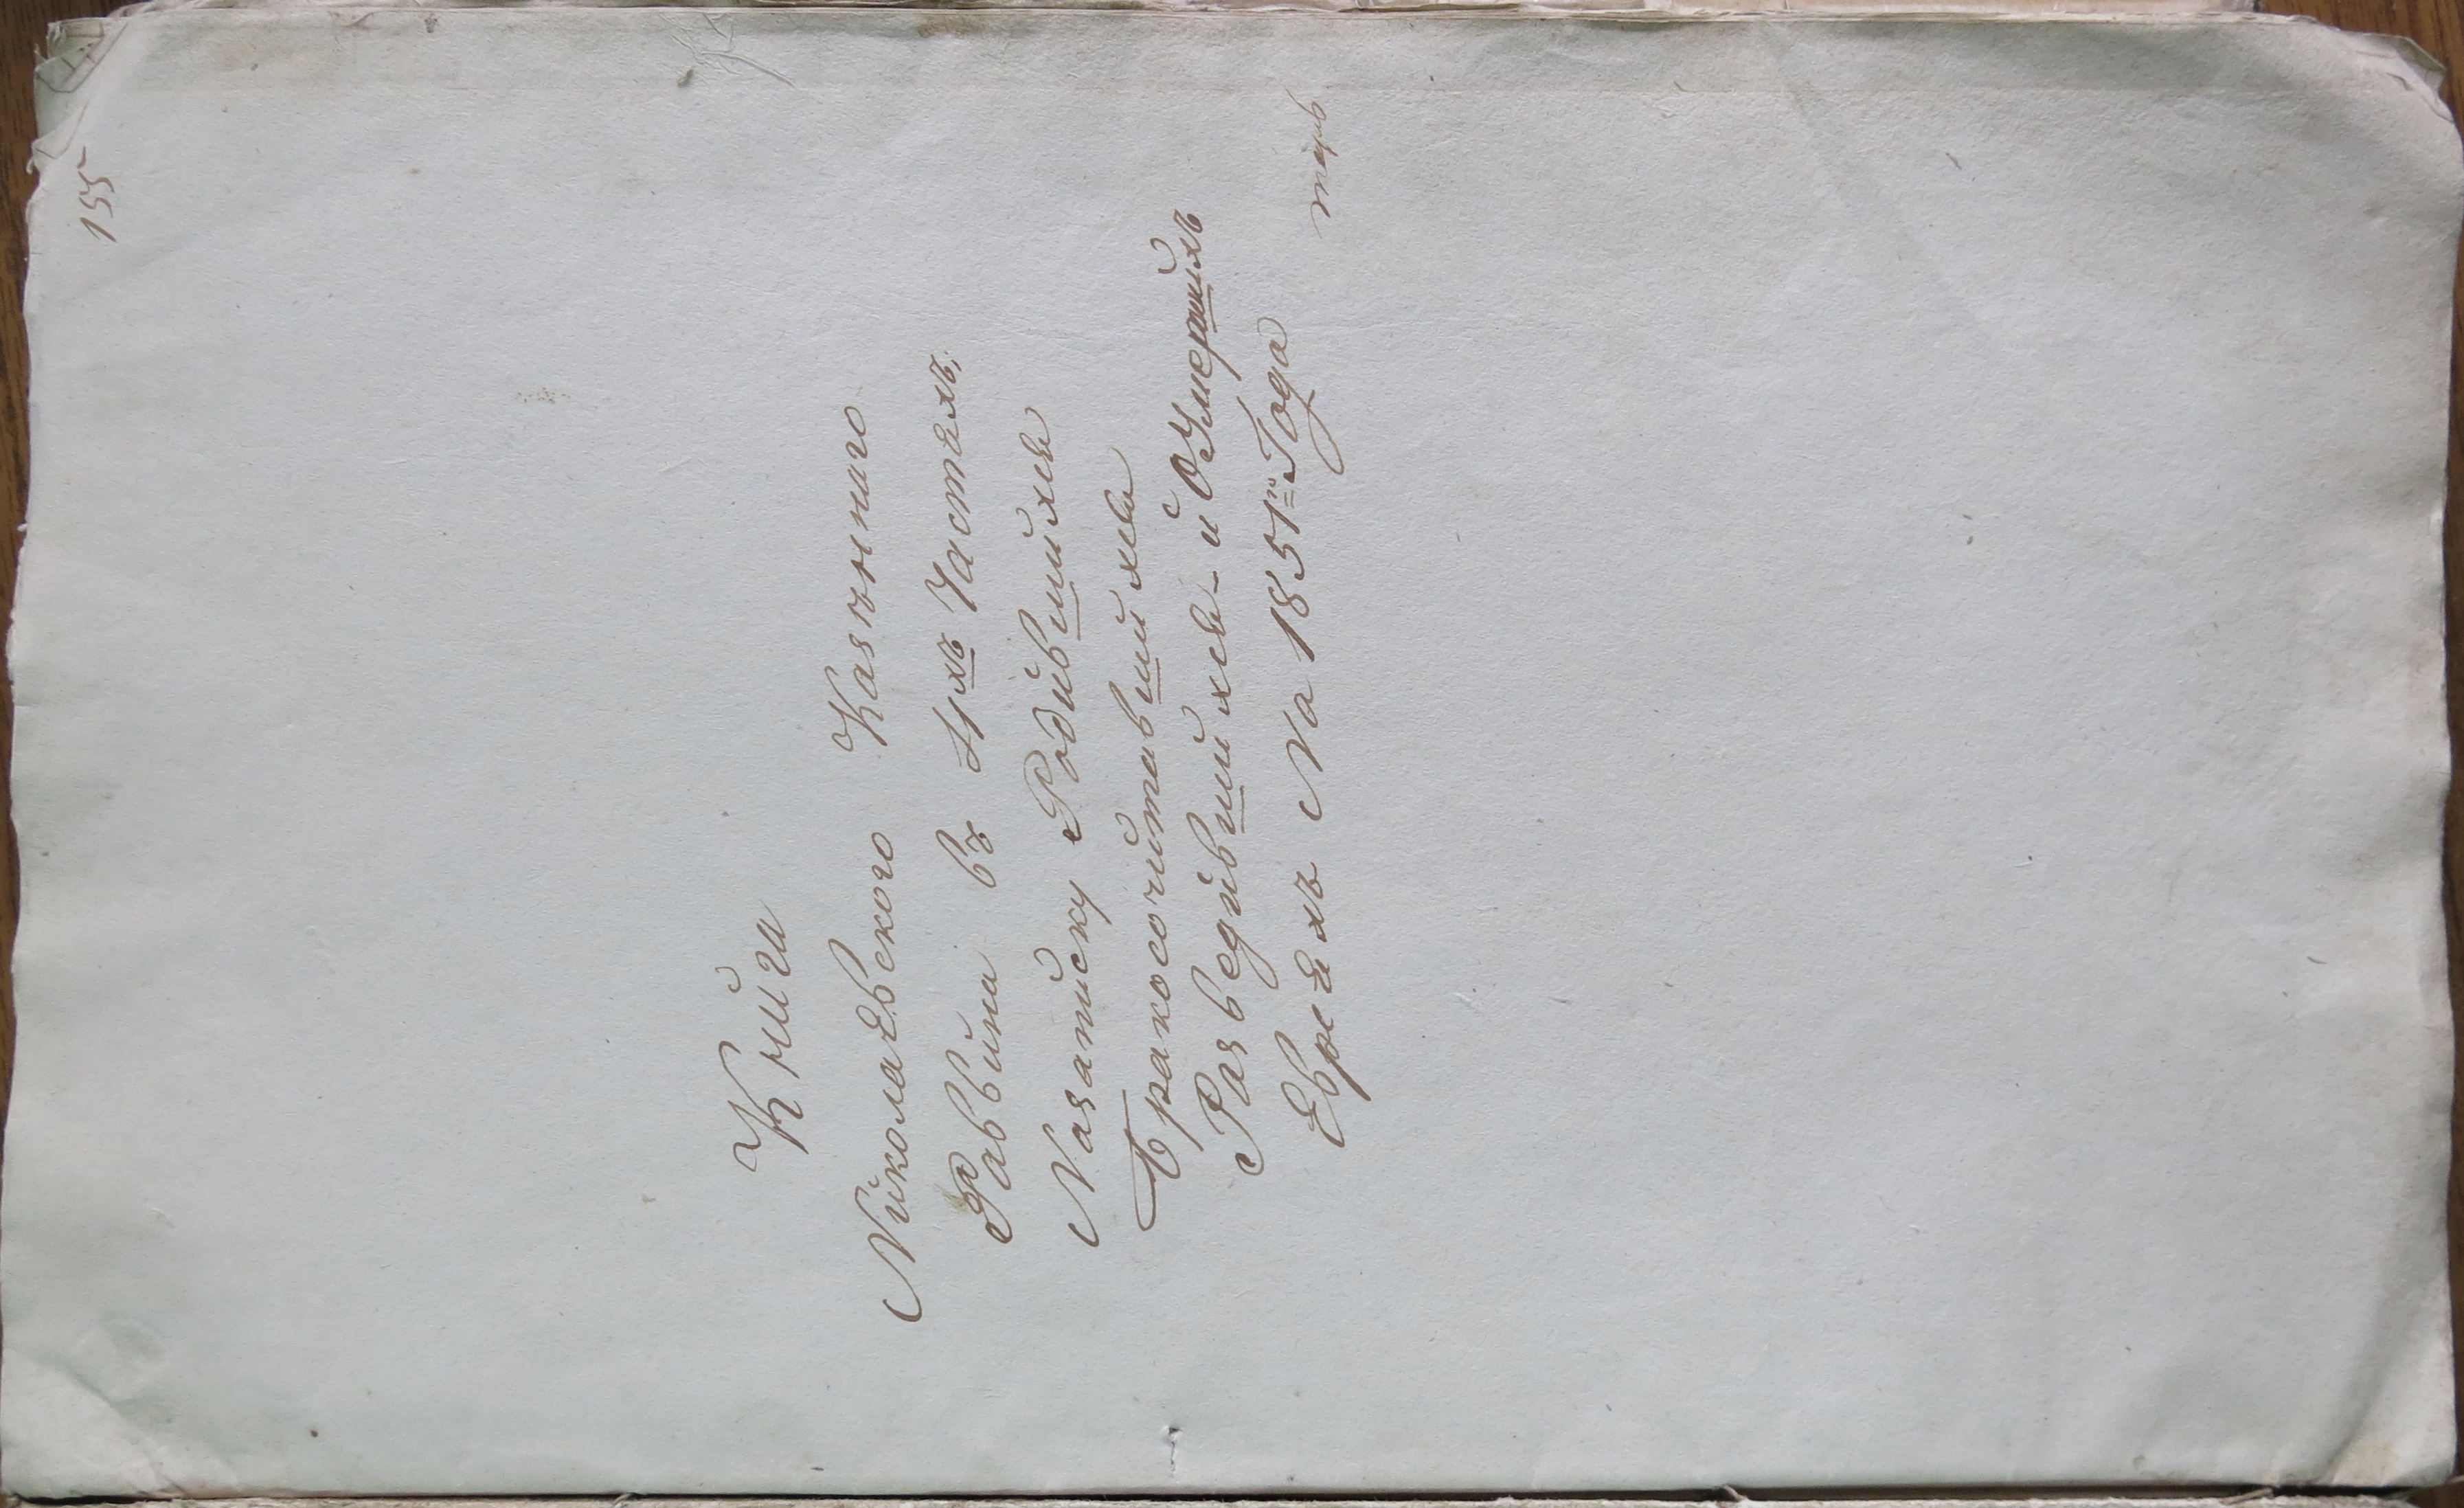 155
Книга
Николаевского Казеннаго
Раввина въ 4хъ Частяхъ:
Назаписку Родившийхся
Бракосочитавшийхся
Разведйвшийхся - й ОУмершйхъ
Евреяхъ На 1851го Года